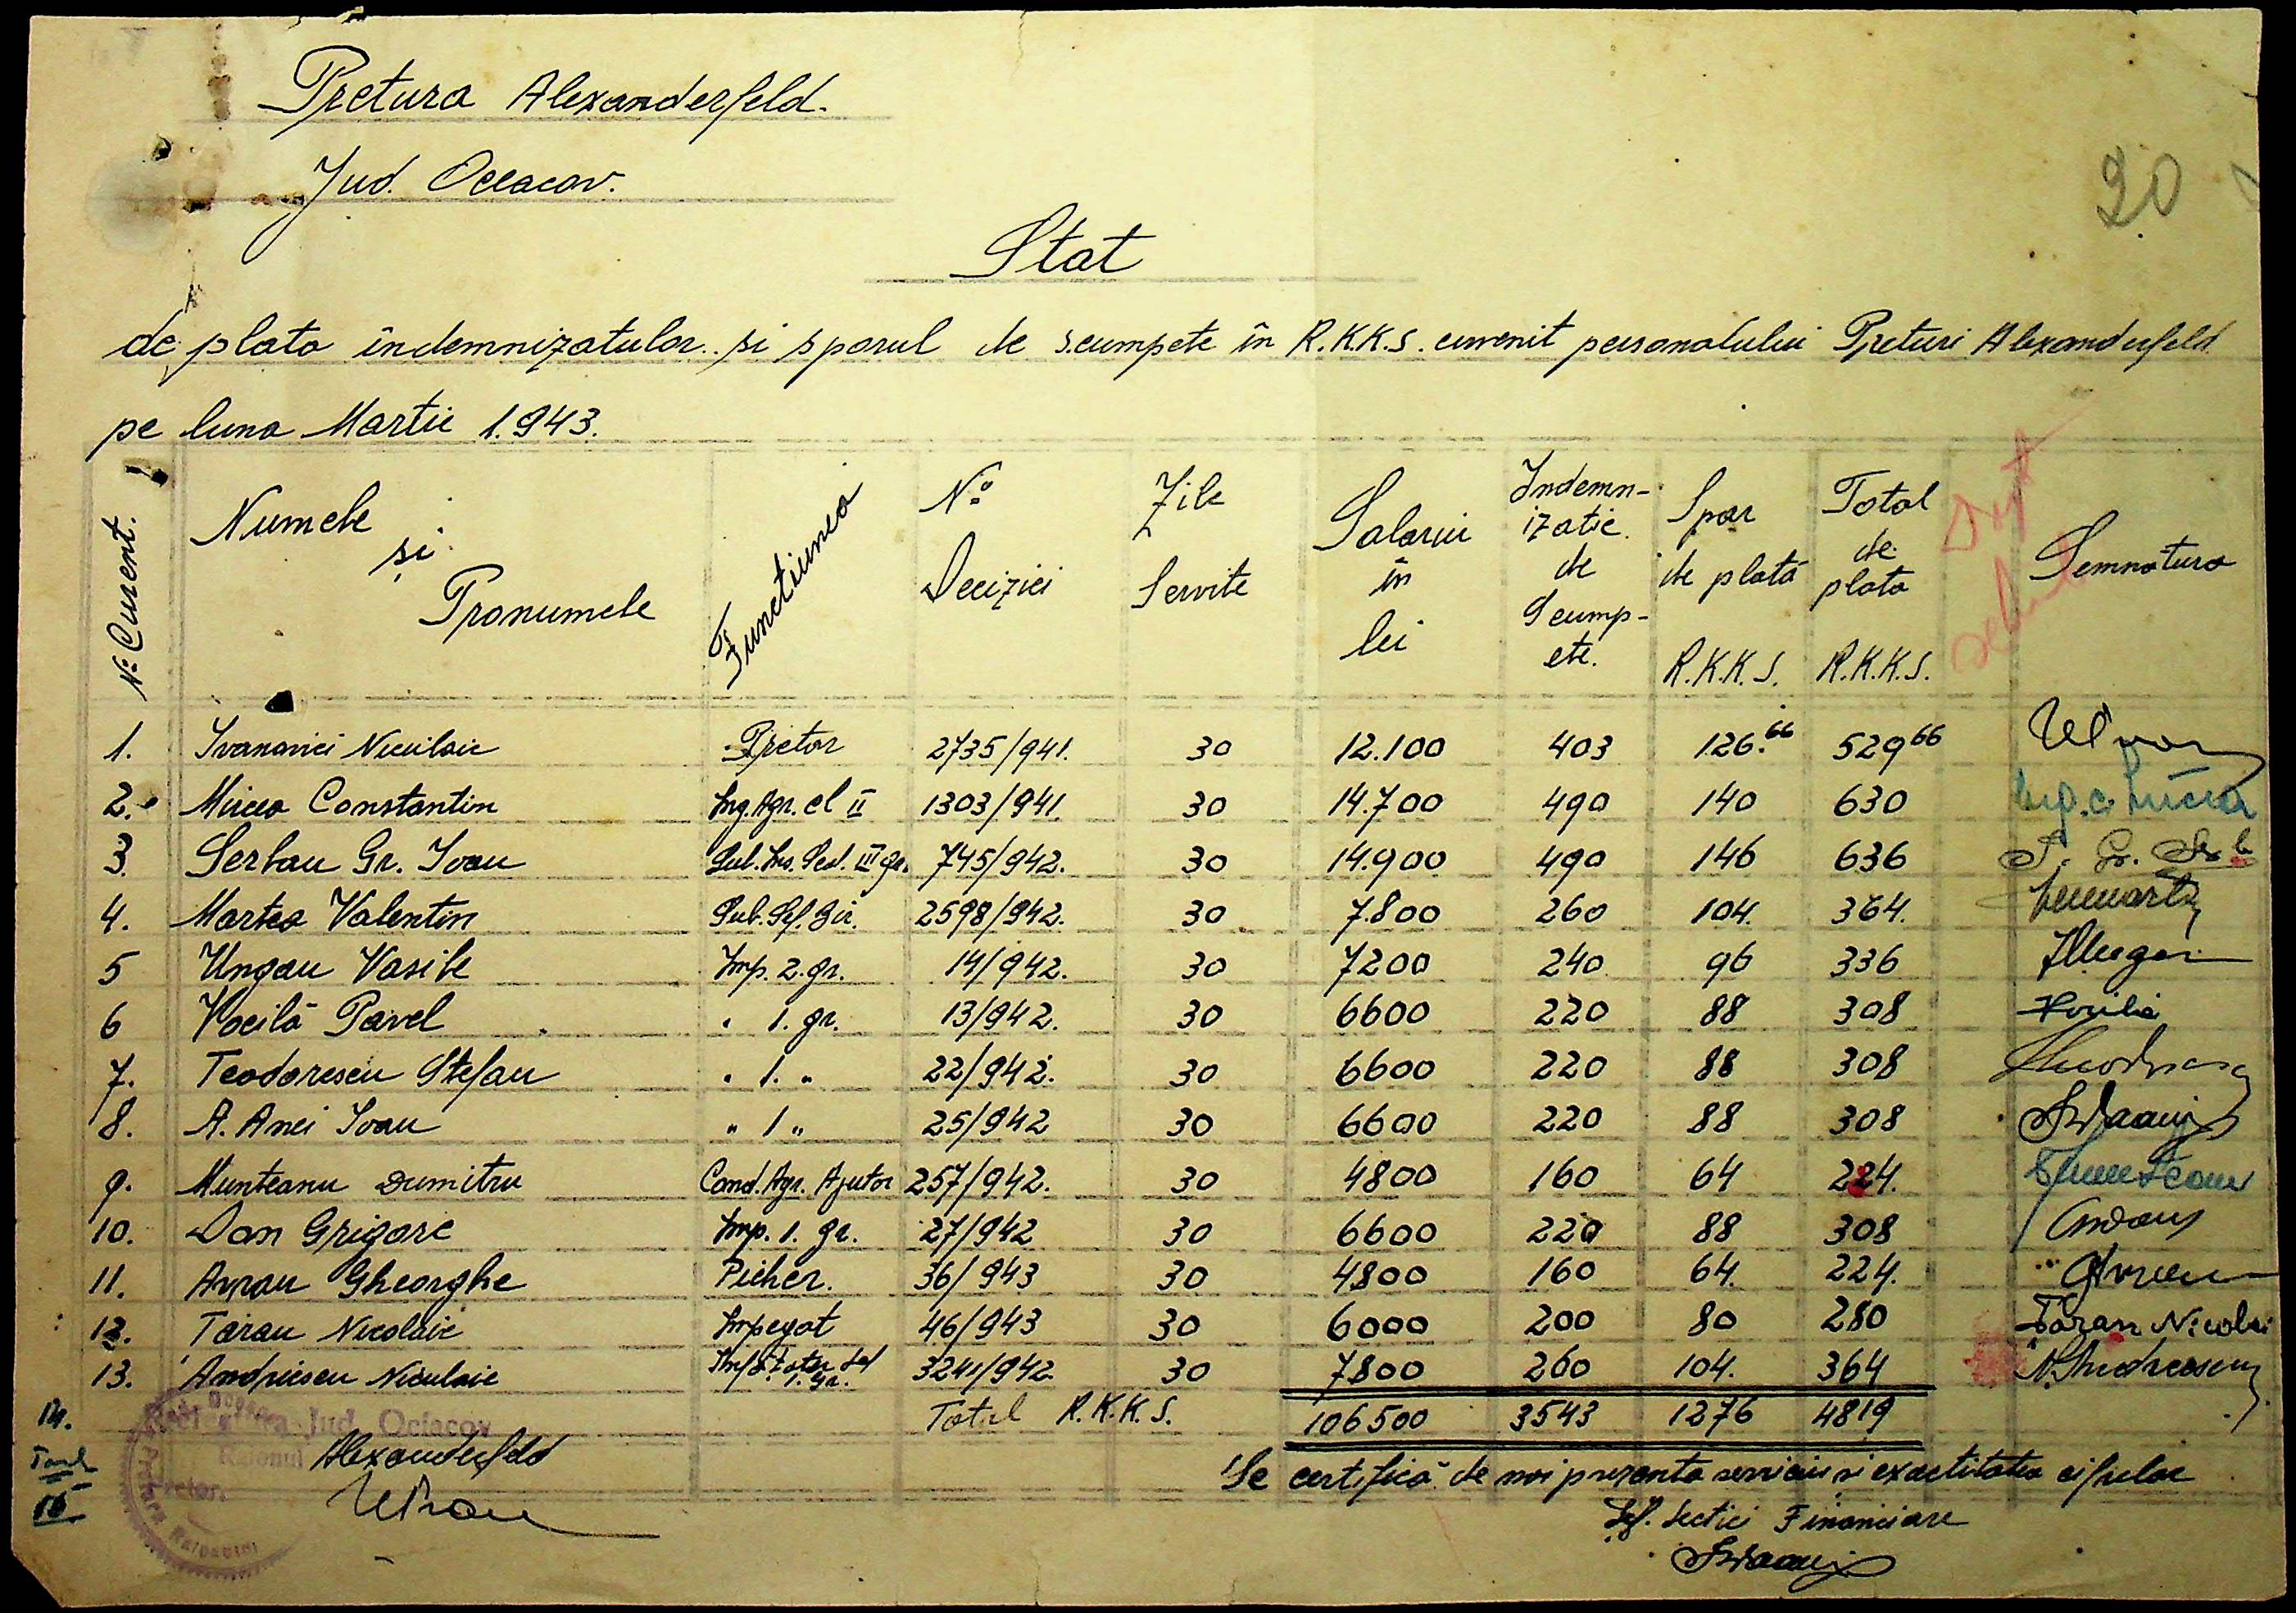 Pretura Alexanderfeld.
Jud. Oceacov.
20
Stat
de plata indemnizatulor si sporul de scumpete în R.K.K.S. cuvenit personalului Preturi Alexanderfeld
pe luna Martie 1.943.
No Curent. Numele si Pronumele Functiunea No Deciziei Zile Servite Salariu în lei Indemn-izatie de Scump-ete. Spor de plată R.K.K.S. Total de plata R.K.K.S. Semnatura
1. Ivanovici Niculaie Pretor 2735/941. 30 12.100 403 126.66 529 66
2. Mircea Constantin Ing. Agr. cl II 1303/941. 30 14.700 490 140 630
3. Serban Gr. Ioan 745/942. 30 14.900 490 146 636
4. Martea Valentin Sub. Sef. Bir. 2598/942. 30 7.800 260 104. 364.
5 Ungau Vasile Imp. 2. gr. 14/942. 30 7200 240 96 336
6 Vocilă Pavel " 1. gr. 13/942. 30 6600 220 88 308
7. Teodorescu Stefan " 1. " 22/942. 30 6600 220 88 308
8. A. Anei Ioan " 1 " 25/942 30 6600 220 88 308
9. Munteanu Dumitru Cond. Agr. Ajutor 257/942. 30 4800 160 64 224.
10. Dan Grigore Imp. 1. gr. 27/942 30 6600 220 88 308
11. Avrau Gheorghe Picher. 36/943 30 4800 160 64. 224.
12. Taran Nicolaie Impegat 46/943 30 6000 200 80 280 Taran Nicolai
13. Andriescu Niculaie 3241/942. 30 7800 260 104. 364
Total R.K.K.S. 106500 3543 1276 4819
14.
Jud. Ociacov
Raionul Alexanderfeld
Pretor.
Se certifică de noi prezenta serviciu si exactitatea cifrelor
Sef. Sectiei Financiare